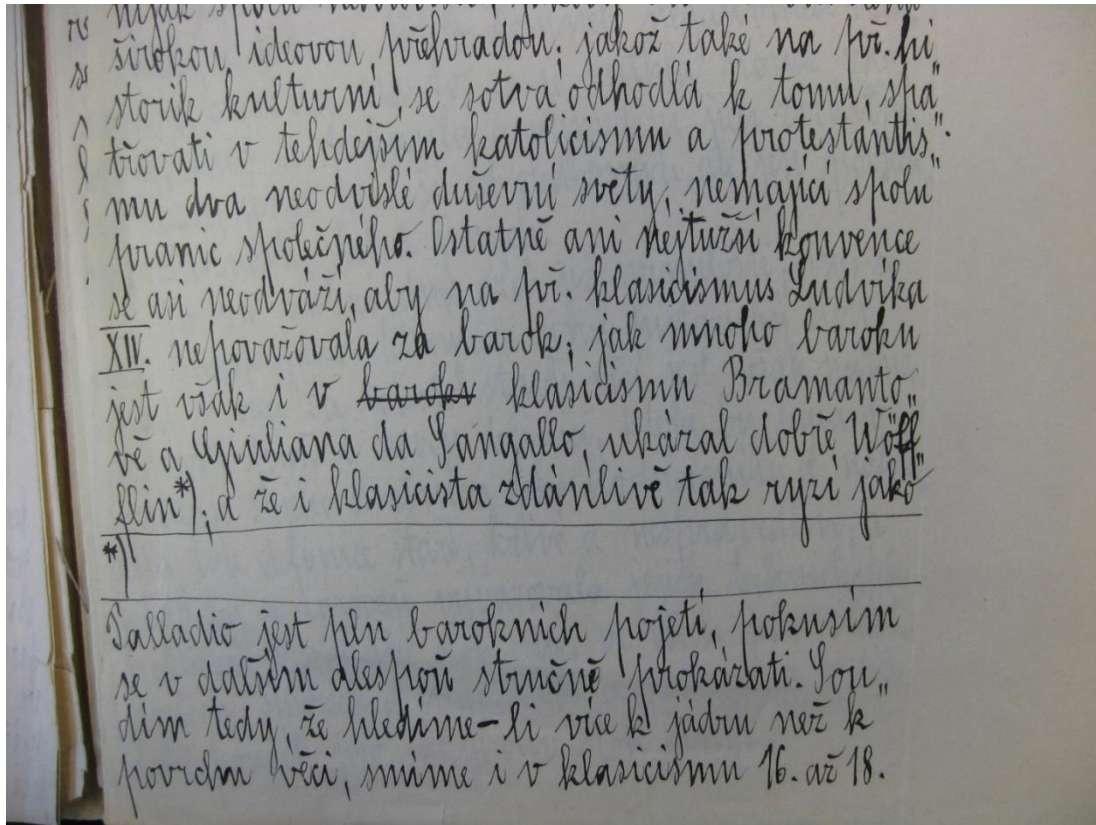 nijak spolu
širokou ideovou přehradou; jakož také na př. hi„
storik kulturní se sotva odhodlá k tomu, spa„
třovati v tehdejším katolicismu a protestantis„
mu dva neodvislé duševní světy, nemající spolu
pranic společného. Ostatně ani nejtužší konvence
se asi neodváží, aby na př. klasicismus Ludvíka
XIV. nepovažovala za barok; jak mnoho baroku
jest však i v baroku klasicismu Bramanto„
vě a Giuliana da Sangallo, ukázal dobře Wölf„
flin*); a že i klasicista zdánlivě tak ryzí jako
*)
Palladio jest pln barokních pojetí, pokusím
se v dalším alespoň stručně prokázati. Sou„
dím tedy, že hledíme-li více k jádru než k
povrchu věci, smíme i v klasicismu 16. až 18.